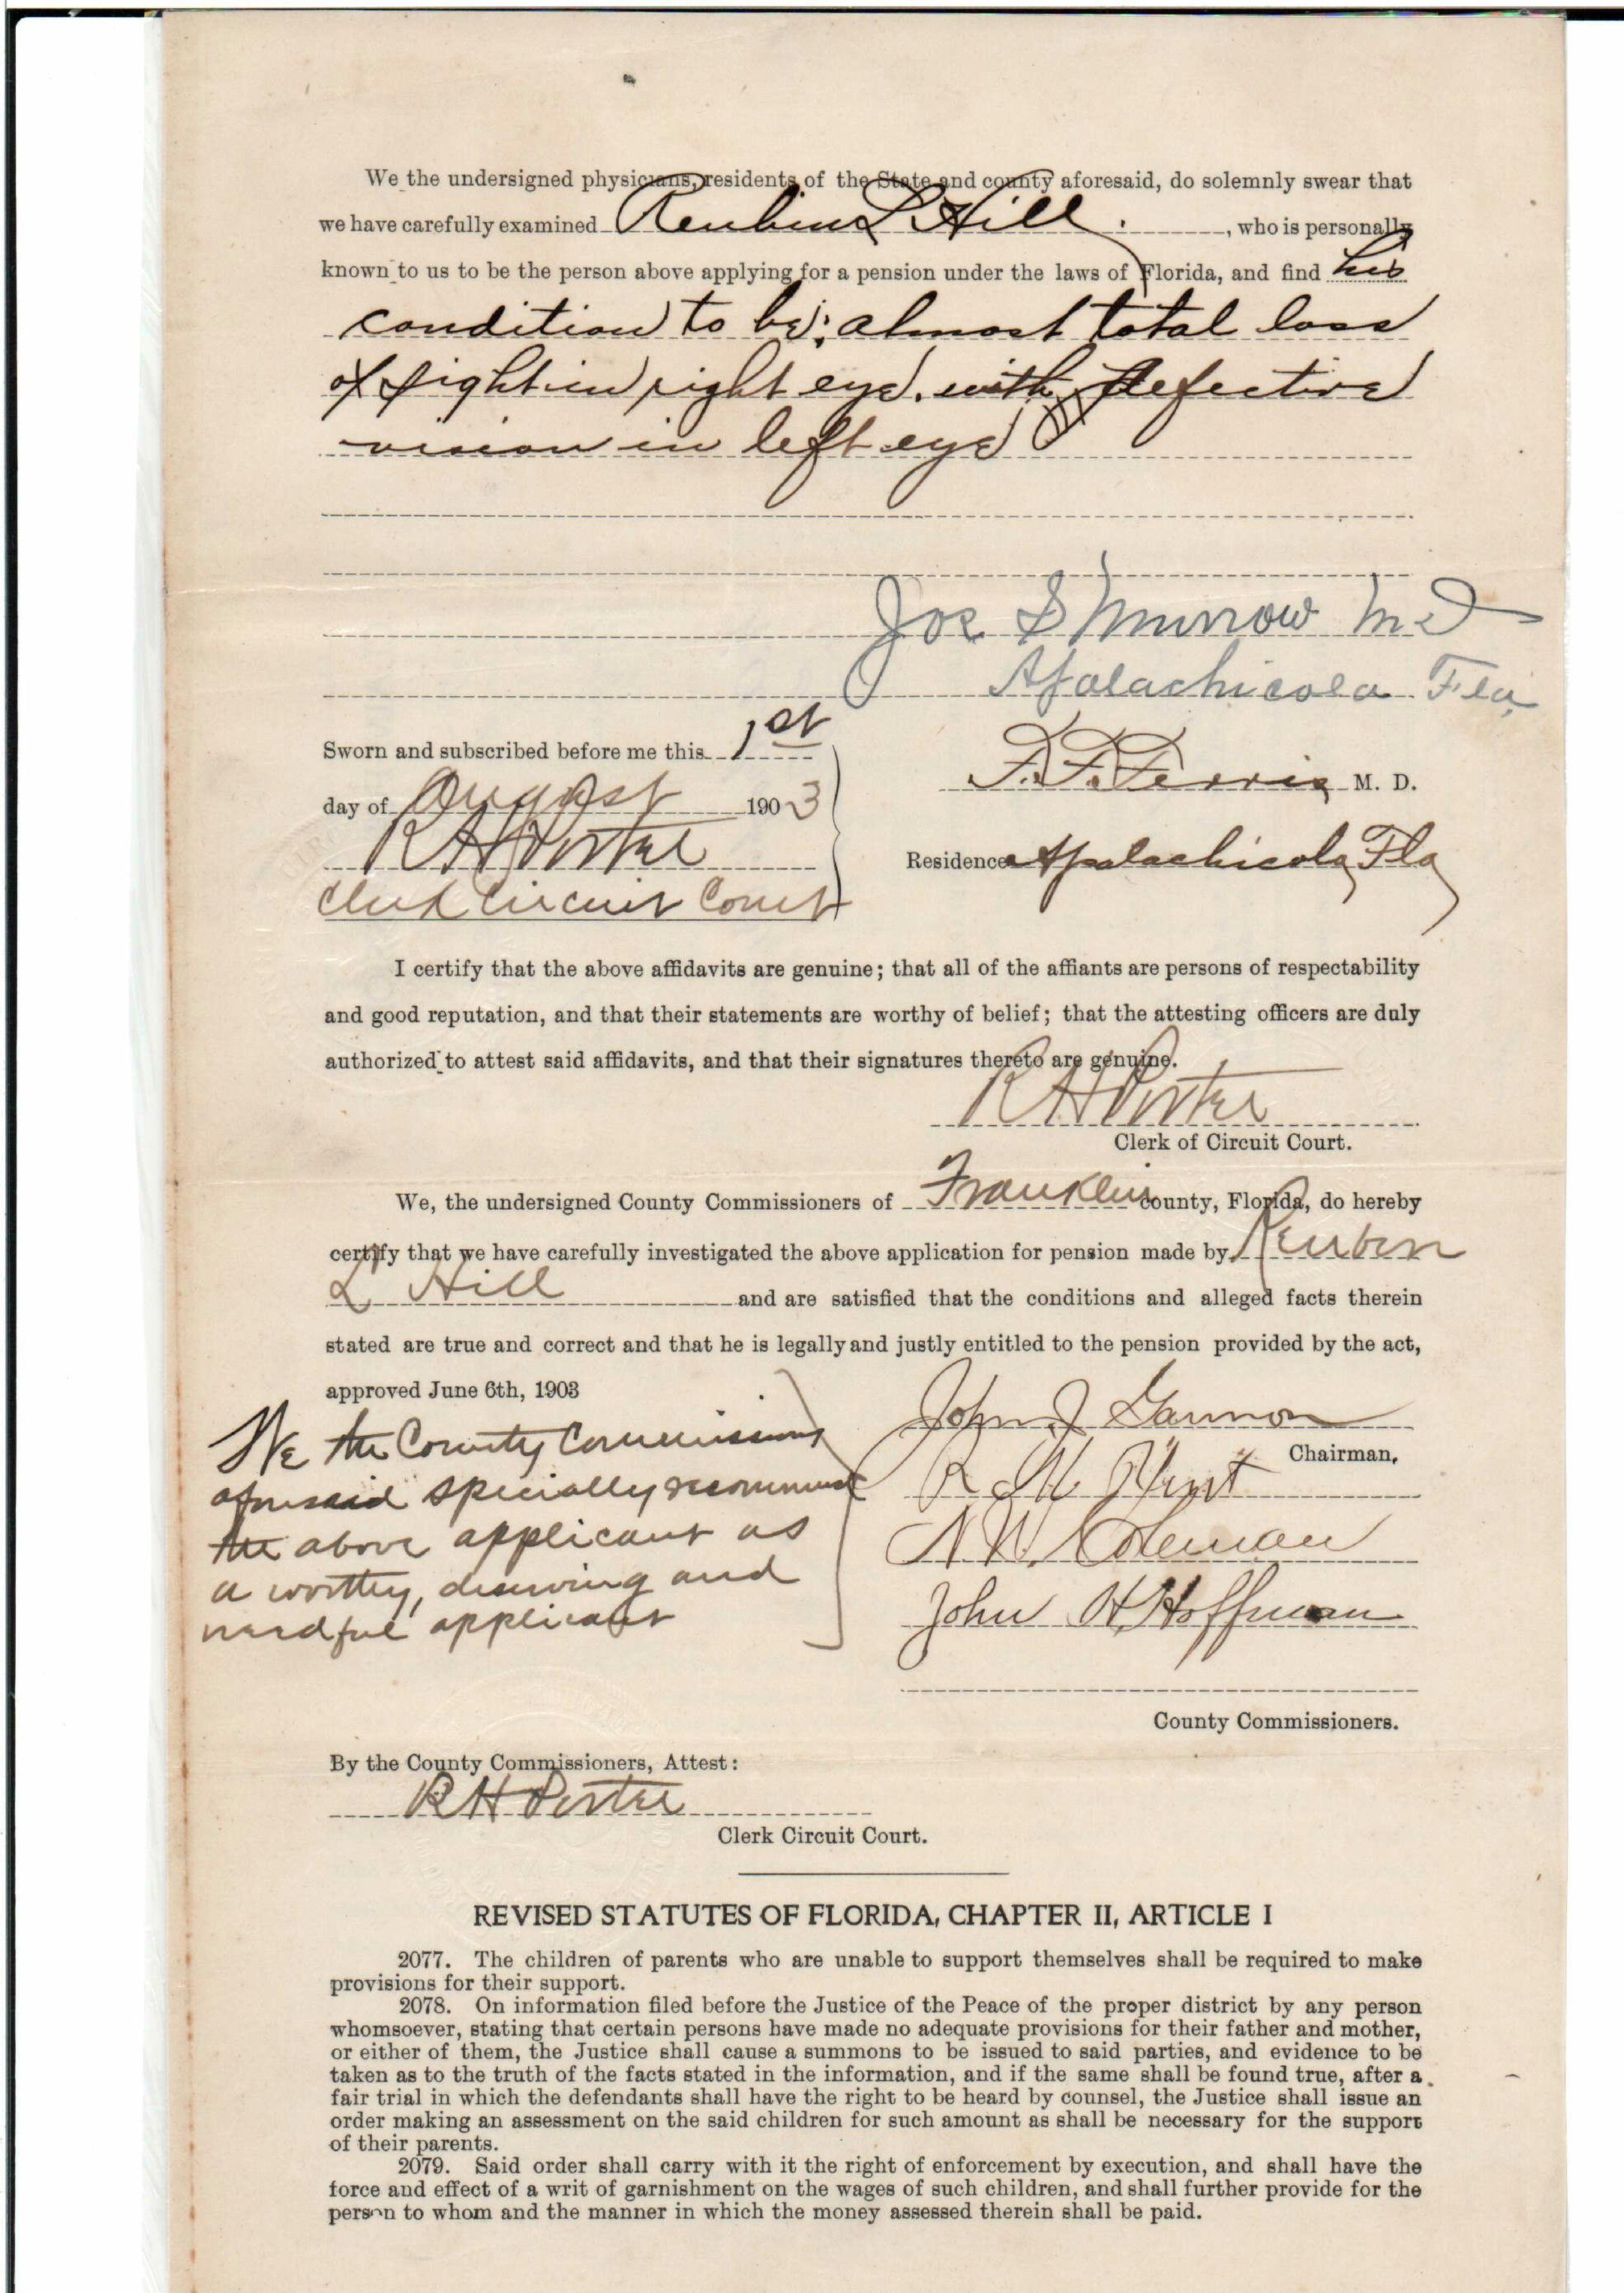 We the undersigned physicians, residents of the State and county aforesaid, do solemnly swear that
we have carefully examined Reubin L Hill, who is personally
known to us to be the person above applying for a pension under the laws of Florida, and find his
condition to be: almost total loss
of sight in right eye. with defective
vision in left eye
Jos S Murrow MD
Apalachicola Fla,
Sworn and subscribed before me this 1st
day of August 1903
R H Porter
Clerk Circuit Court
F. F. Ferris, M. D.
Residence Apalachicola, Fla
I certify that the above affidavits are genuine; that all of the affiants are persons of respectability
and good reputation, and that their statements are worthy of belief; that the attesting officers are duly
authorized to attest said affidavits, and that their signatures thereto are genuine.
R H Porter
Clerk of Circuit Court.
We, the undersigned County Commissioners of Franklin county, Florida, do hereby
certify that we have carefully investigated the above application for pension made by Reuben
L Hill and are satisfied that the conditions and alleged facts therein
stated are true and correct and that he is legally and justly entitled to the pension provided by the act,
approved June 6th, 1903
We the County Commissioners
aforesaid specially recommend
the above applicant as
a worthy, deserving and
needful applicant
John J
Chairman,
R
N. W. Coleman
John H. Hoffman
County Commissioners.
By the County Commissioners, Attest:
R H Porter
Clerk Circuit Court.
REVISED STATUTES OF FLORIDA, CHAPTER II, ARTICLE I
2077. The children of parents who are unable to support themselves shall be required to make
provisions for their support.
2078. On information filed before the Justice of the Peace of the proper district by any person
whomsoever, stating that certain persons have made no adequate provisions for their father and mother,
or either of them, the Justice shall cause a summons to be issued to said parties, and evidence to be
taken as to the truth of the facts stated in the information, and if the same shall be found true, after a
fair trial in which the defendants shall have the right to be heard by counsel, the Justice shall issue an
order making an assessment on the said children for such amount as shall be necessary for the support
of their parents.
2079. Said order shall carry with it the right of enforcement by execution, and shall have the
force and effect of a writ of garnishment on the wages of such children, and shall further provide for the
person to whom and the manner in which the money assessed therein shall be paid.